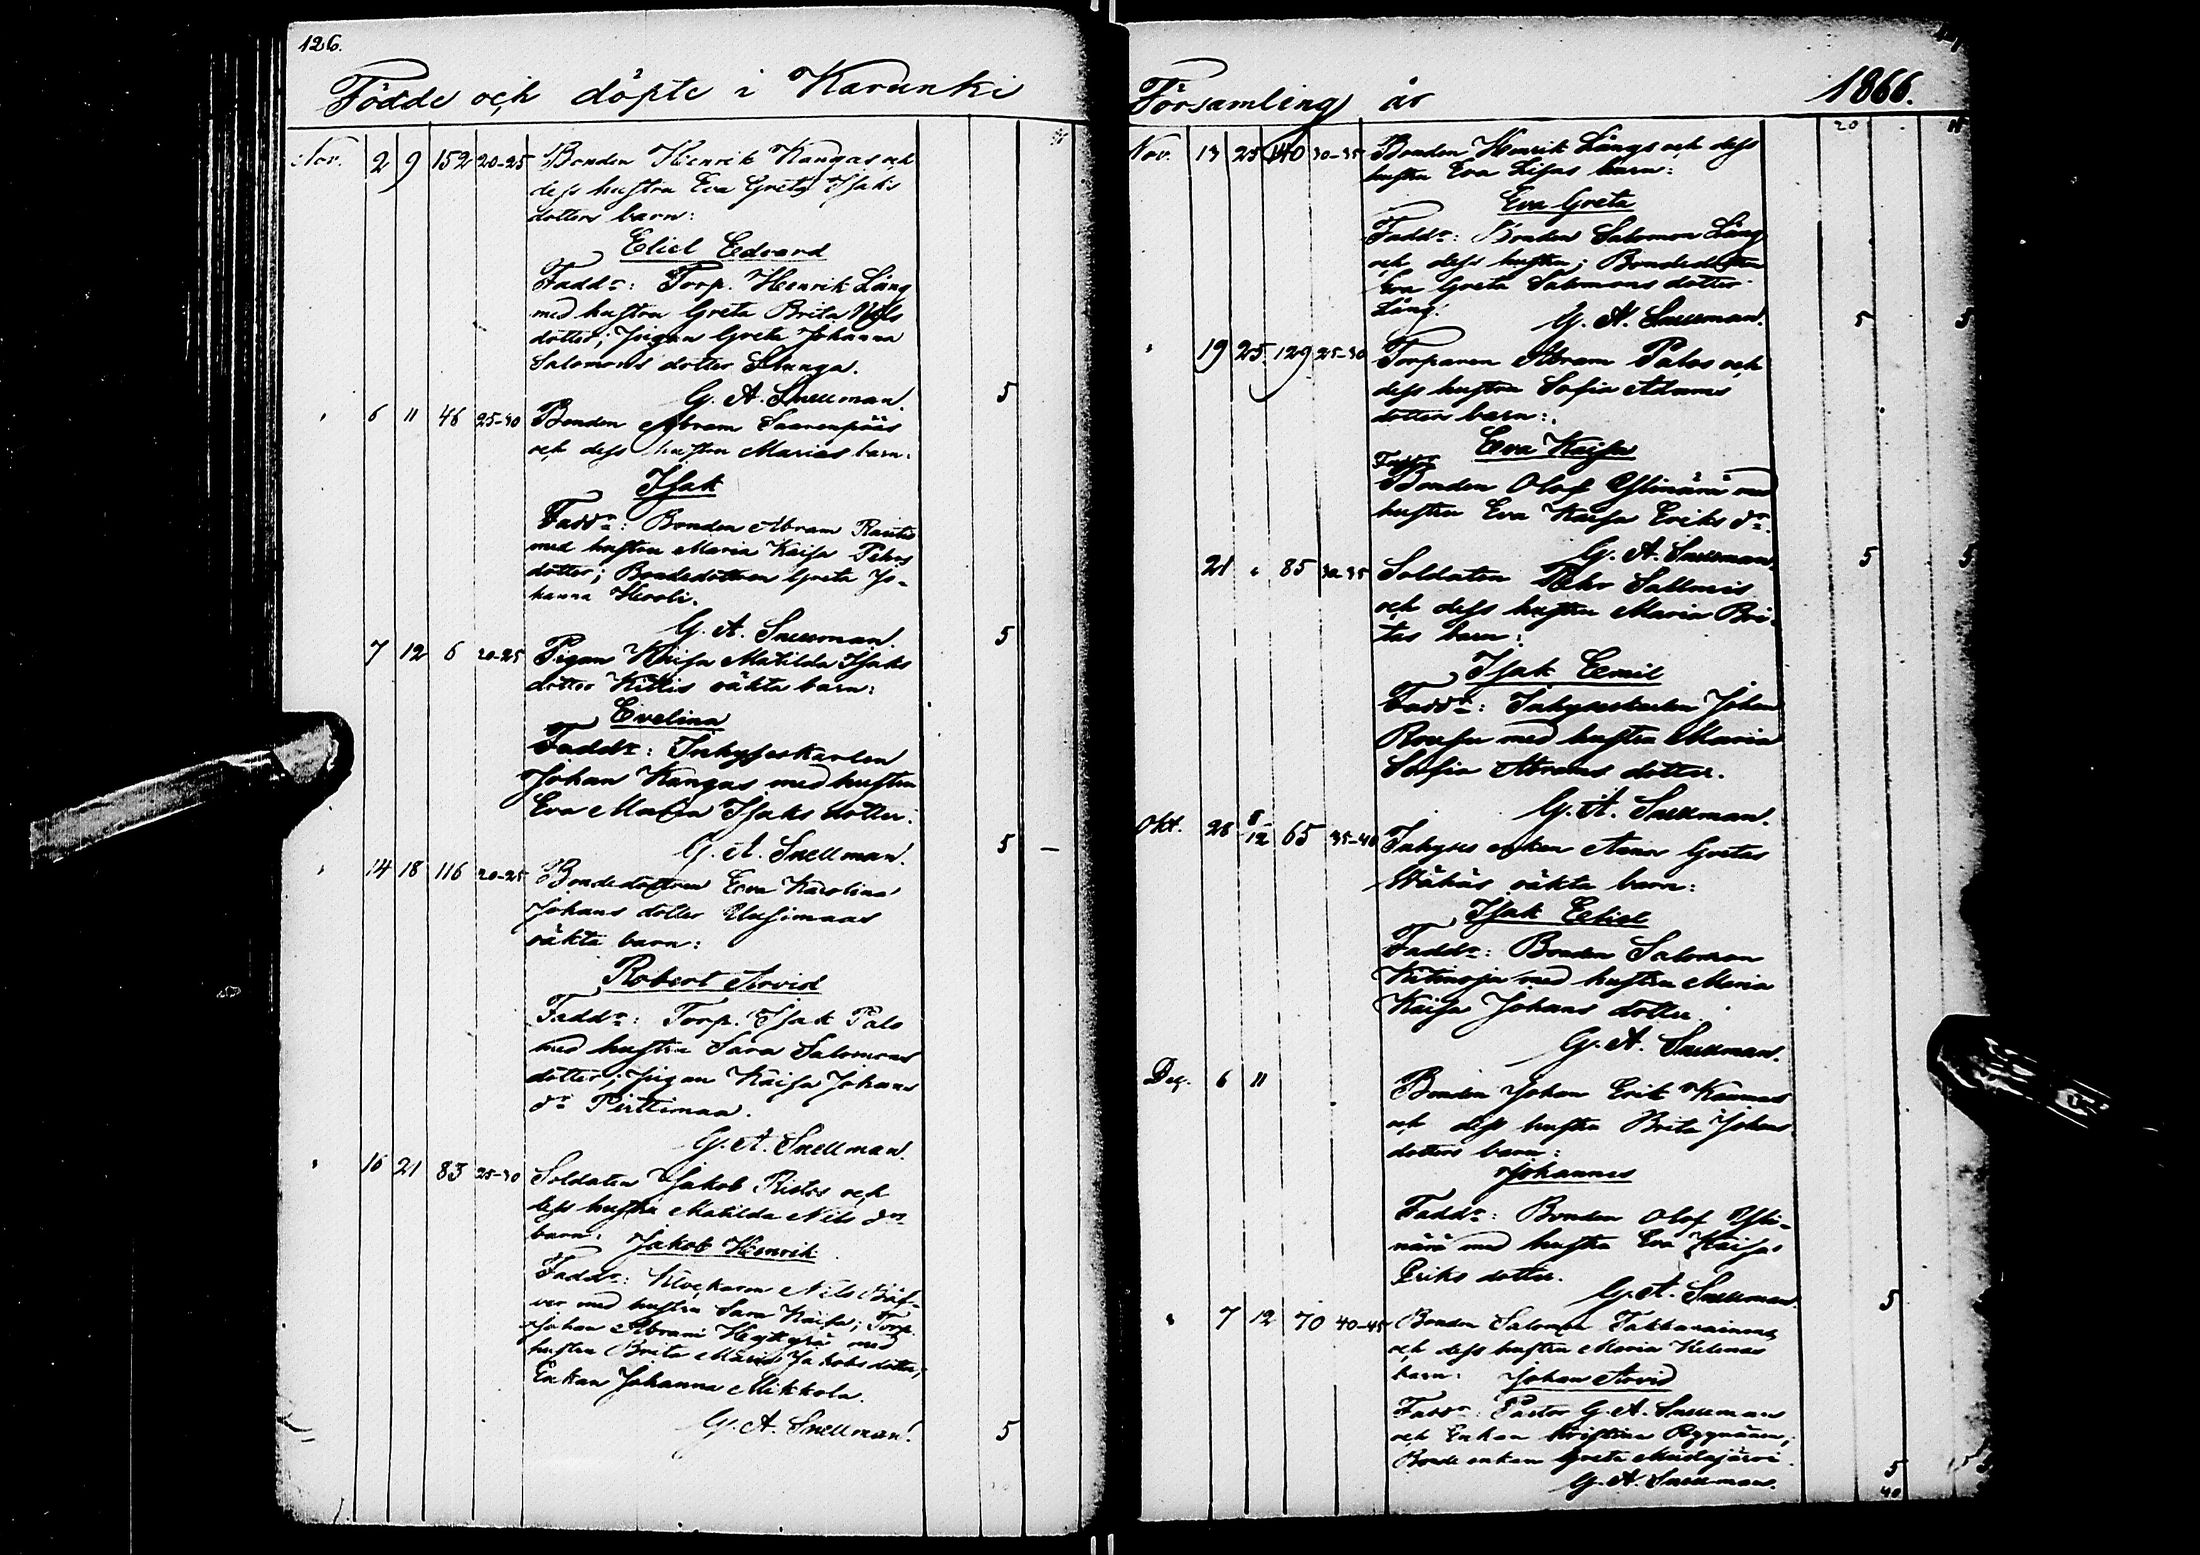 126.
Födde och döpte i Karunki
Nov. 2 9 152 20-25 Bonden Henrik Kangas och
dess hustru Eva Greta Isaks
dotters barn:
Eliel Edvard
Faddr: Torp. Henrik Lång
med hustru Greta Brita Nils
dotter; pigan Greta Johanna
Salomons dotter
G. A. Snellman. 5
" 6 11 46 25-30 Bonden Abram Saarenpääs
och dess hustru Marias barn:
Isak
Faddr: Bonden Abram Rautio
med hustru Maria Kaisa Pehrs
dotter; Bondedottren Greta Jo-
hanna Hooli.
G. A. Snellman. 5
7 12 6 20-25 Pigan Kaisa Matilda Isaks
dotter Kittis oäkta barn:
Evelina
Faddr: Inhyseskarlen
Johan Kangas med hustru
Eva Maria Isaks dotter.
G. A. Snellman. 5 —
" 14 18 116 20-25 Bondedottren Eva Karolina
Johans dotter Uusimaas
oäkta barn:
Robert Arvid
Faddr: Torp. Isak Palo
med hustru Sara Salomons
dotter; pigan Kaisa Johans
dr Pirttimaa.
G. A. Snellman.
" 16 21 83 25-30 Soldaten Jakob Ristos och
dess hustru Matilda Nils drs
barn: Jakob Henrik
Faddr: Klockaren Nils Bäf-
ver med hustru Sara Kaisa; Torp.
Johan Abram Heykyrä med
hustru Brita Maria Jakobs dotter;
Enkan Johanna Mikkola.
G. A. Snellman. 5
Församling år 1866.
20
Nov. 13 25 140 30-35 Bonden Henrik Långs och dess
hustru Eva Lisas barn:
Eva Greta
Faddr: Bonden Salomon Lång
och dess hustru; Bondedottren
Eva Greta Salomons dotter
Lång.
G. A. Snellman. 5 5
" 19 25 129 25-30 Torparen Abram Palos och
dess hustru Sofia Adams
dotters barn:
Eva Kaisa
Faddr
Bonden Olof Ylinärä med
hustru Eva Kaisa Eriks dr.
G. A. Snellman. 5 5
21 " 85 30-35 Soldaten Pehr Sallmis
och dess hustru Maria Bri-
tas barn:
Isak Emil
Faddr: Inhyseskarlen Johan
Rousu med hustru Maria
Sofia Abrams dotter.
G. A. Snellman.
Okt. 28 8/12 65 35-40 Inhyses enkan Anna Gretas
Wähäs oäkta barn:
Isak Eeliel
Faddr: Bonden Salomon
med hustru Maria
Kaisa Johans dotter.
G. A. Snellman.
Dec. 6 11 Bonden Johan Erik Kaumas
och dess hustru Brita Johans
dotters barn:
Johannes
Faddr: Bonden Olof Yli-
närä med hustru Eva Kaisa
Eriks dotter.
G. A. Snellman. 5
" 7 12 70 40-45 Bonden Salomon Takkanainens
och dess hustru Maria Helenas
barn: Johan Arvid
Faddr: Pastor G. A. Snellman
och Enkan Kristina
Bonde enkan Greta Mustajärvi
G. A. Snellman. 5
40